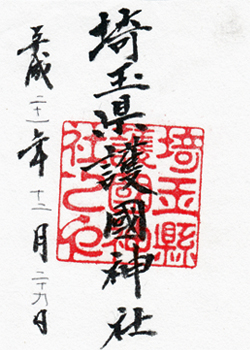 埼玉県護國神社
平成二十一年十二月二十九日
埼玉縣
護國神
社之印